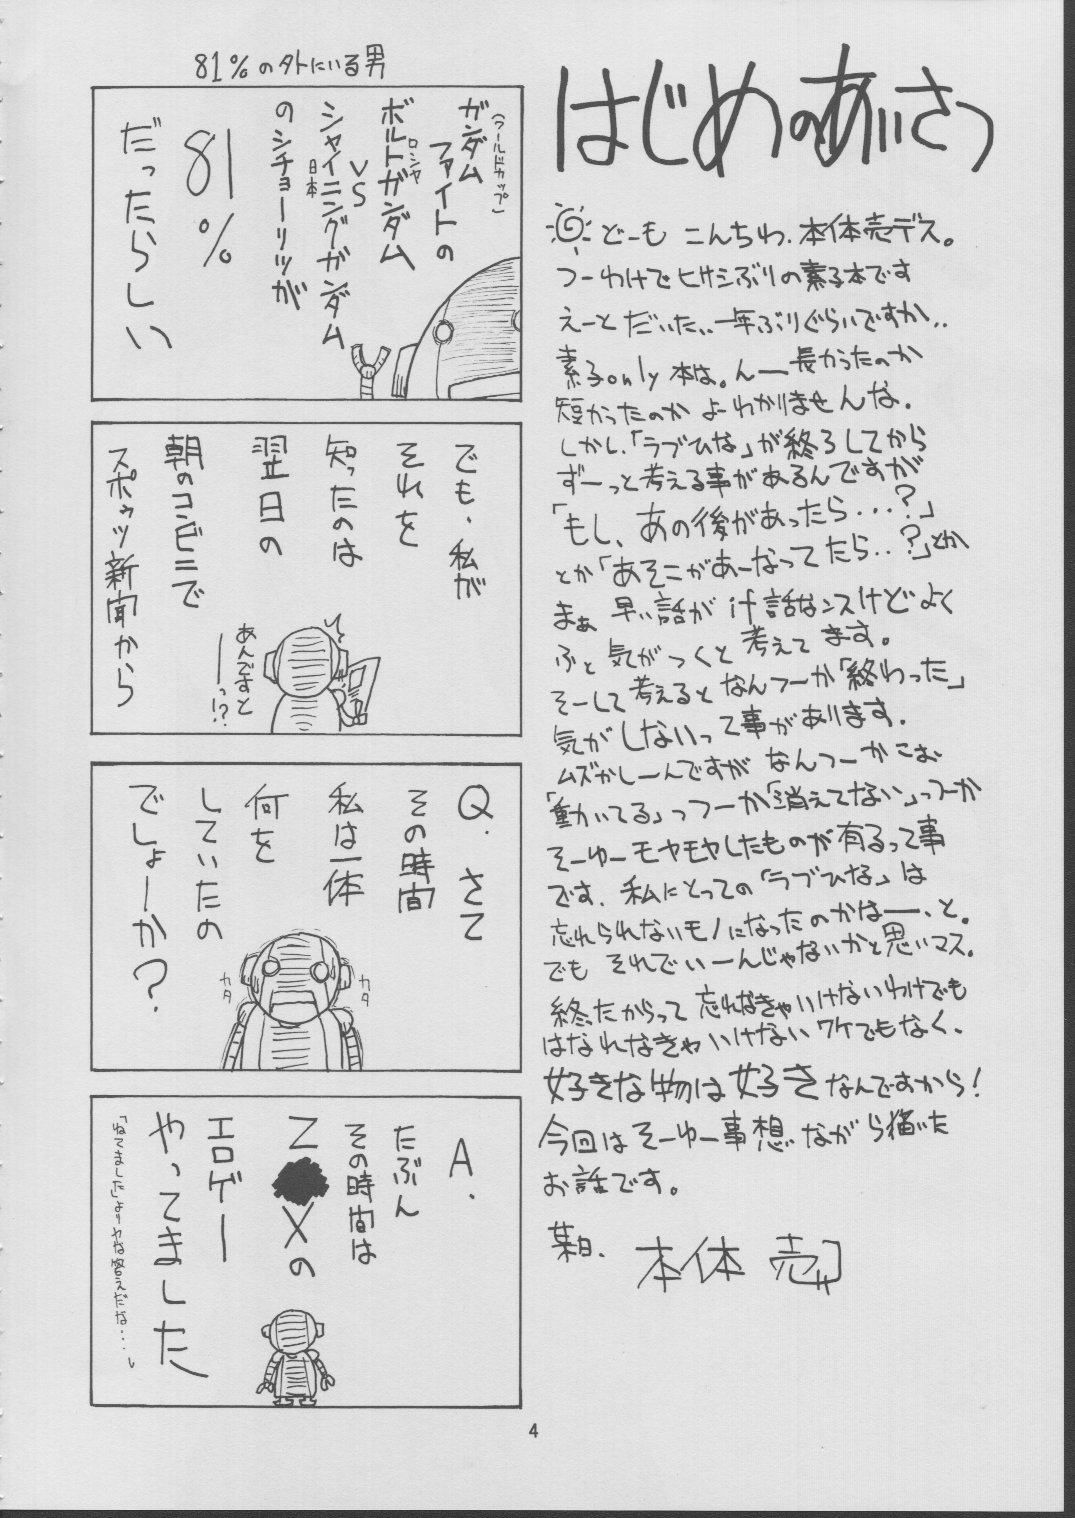 はじめのあいさつ
どーも こんちわ、本体売デス。
つーわけでヒサシぶりの素子本です
えーと だいた、、一年ぶりぐらいですか、、
素子only本は。んー長かったのか
短かったのか よーわかりませんな。
しかし、「ラブひな」が終ろしてから
ずーっと考える事があるんですが
「もし、あの後があったら・・・?」
とか「あそこがあーなってたら・・?」とか
まぁ 早い話が if話なンスけどよく
ふと気がつくと考えてます。
そーして考えるとなんつーか「終わった」
気がしないって事があります。
ムズかしーんですが なんつーかこぉ
「動いてる」っつーか「消えてない」っつーか
そーゆーモヤモヤしたものが有るって事
です。私にとっての「ラブひな」は
忘れられないモノになったのかはー、と。
でも それでいーんじゃないかと思いマス。
終ったからって 忘れなきゃいけないわけでも
はなれなきゃいけないワケでもなく、
好きな物は好きなんですから!
今回はそーゆー事想いながら描いた
お話です。
某日、 本体 売
81%のソトにいる男
(ワールドカップ)
ガンダム
ファイトの
ロシヤ
ボルトガンダム
VS
日本
シャイニングガンダム
のシチョーリツが
81%
だったらしい
でも、私が
それを
知ったのは
翌日の
朝のコンビニで
スポゥツ新聞から
あんですと
ーっ!?
Q.さて
その時間
私は一体
何を
していたの
でしょーか?
カタ
カタ
A.
たぶん
その時間は
Z●Xの
エロゲー
やってました
「ねてました」よりヤな答えだな・・・。
4